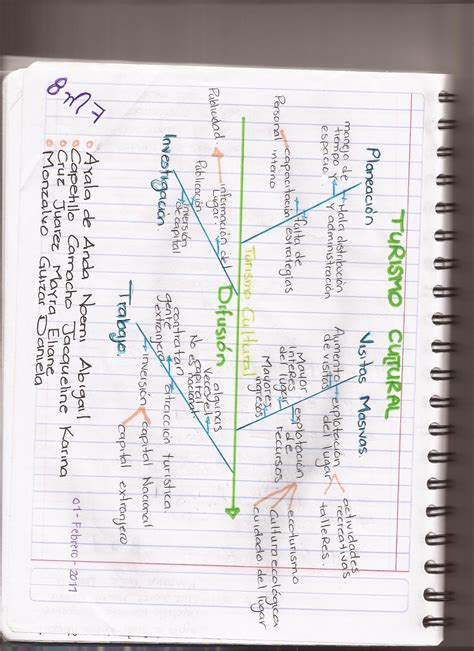 TURISMO CULTURAL
Planeación
Visitas Masivas.
manejo de
tiempo y
espacio.
Mala distribución
y administración
Personal
capacitación
interno
falta de
estrategias
Aumento
de visitas
explotación
del lugar
actividades
recreativas
talleres.
Mayor
interes
de lugar
explotación
de
recursos
ecoturismo
Cultura ecológica
cuidado del lugar
Mayores
ingresos
Turismo Cultural
Difusión
Publicidad
información del
Lugar
Publicación
inversión
de capital
Investigación
algunas
veces el
capital
No es nacional
contratan
gente
extranjera
atracción turistica
inversión
capital Nacional
capital extranjero
Trabajo.
Ayala de Anda Noemi Abigail
Capetillo Camacho Jacqueline Karina
Cruz Juarez Mayra Eliane
Monzalvo Guizar Daniela
01 - Febrero - 2011